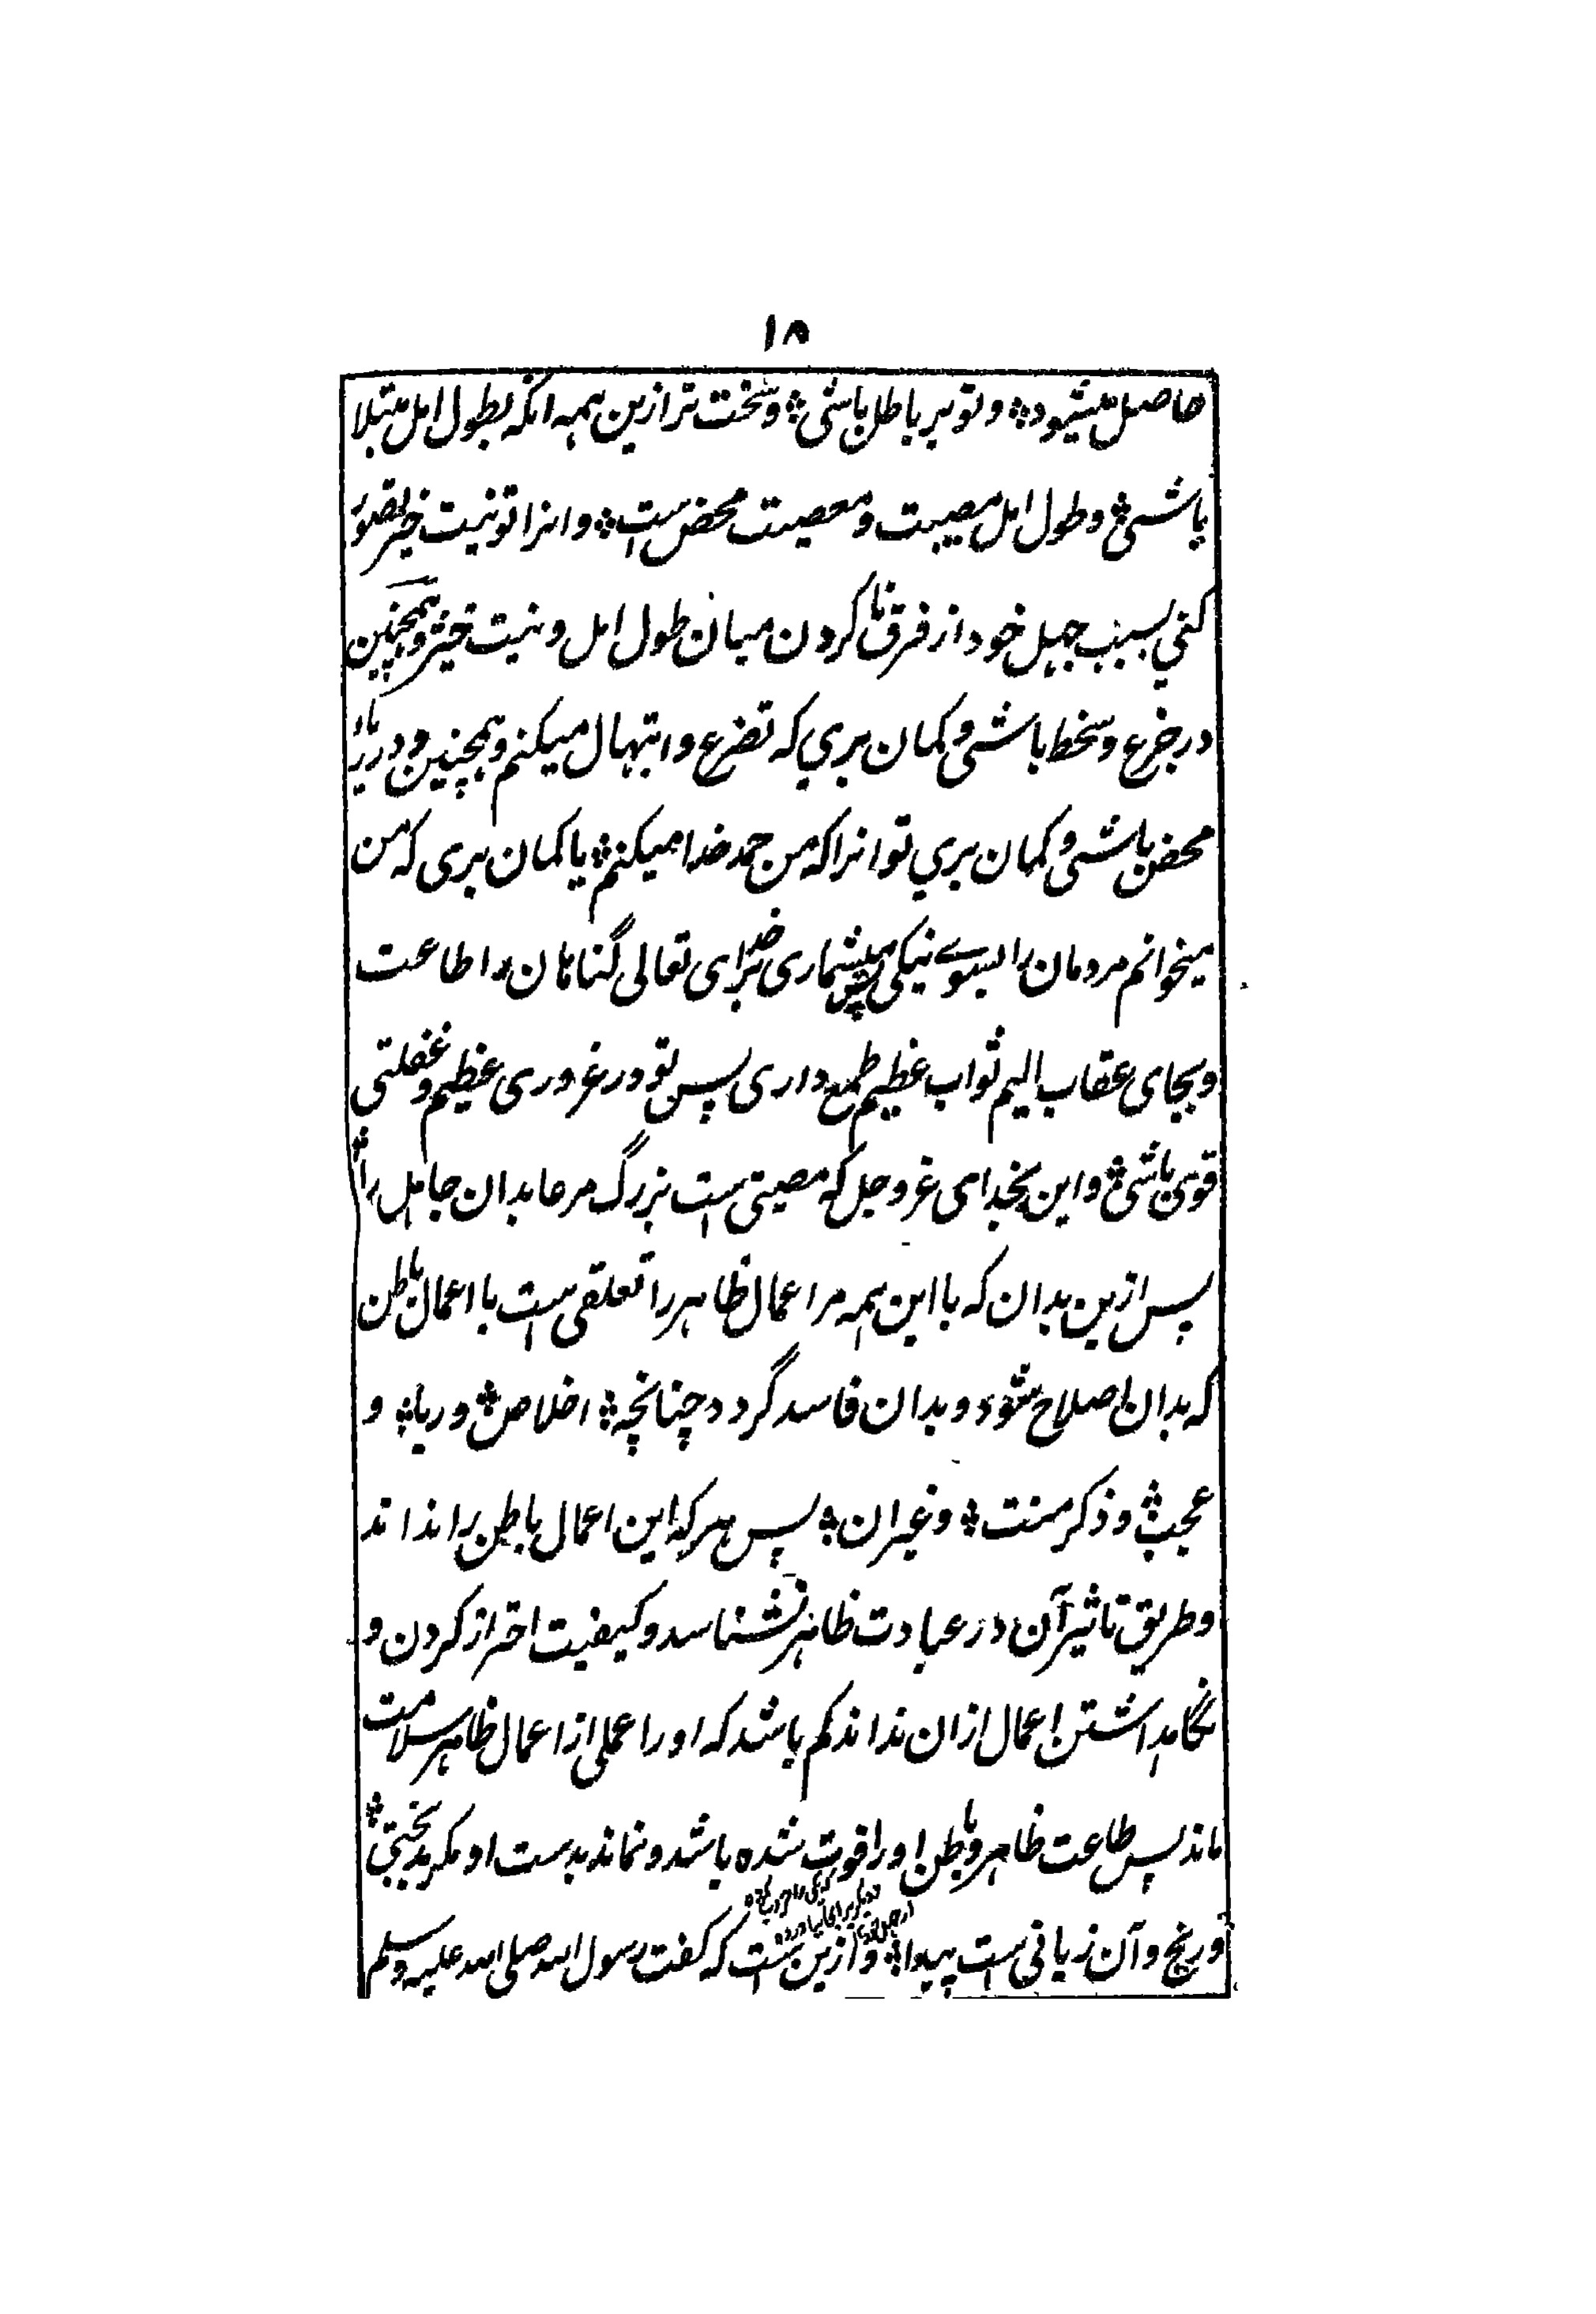 ١٨
حاصل میشود ؞ و تو بر باطل باشی ؞ و سخت تر ازین همه انکه بطول امل مبتلا
باشی ؞ و طول امل مصیبت و معصیت محض است ؞ و انرا تو نیت خیر تصور
کنی بسبب جهل خود از فرق نا کردن میان طول امل و نیت خیر ؞ و همچنین
در جزع و سخط باشی و کمان بری که تضرع و ابتهال میکنم و همچنین در ریا
محض باشی و کمان بری تو انرا که من حمد خدا میکنم ؞ یا کمان بری که من
میخوانم مردمان را بسوے نیکی پس بشماری خدای تعالی گناهان را طاعت
و بجای عقاب الیم ثواب عظیم طمع داری پس تو در غروری عظیم و غفلتی
قوی باشی ؞ و این بخدای عز و جل که مصیبتی است بزرگ مر عابدان جاهل را ؞
پس ازین بدان که با این همه مر اعمال ظاهر را تعلقی است با اعمال باطن
که بدان اصلاح شود و بدان فاسد گردد چنانچه ؞ اخلاص ؞ و ریا ؞ و
عجب ؞ و ذکر منت ؞ و غیر ان ؞ پس هر که این اعمال باطن را نداند
و طریق تاثیر آن در عبادت ظاهر نشناسد و کیفیت احتراز کردن و
نگاهداشتن اعمال ازان نداند کم باشد که او را عملی از اعمال ظاهر سلامت
ماند پس طاعت ظاهر و باطن او را فوت شده باشد و نماند بدست او مگر بدبختی ؞
و رنج و آن زیانی است پیدا ؞ و ازین است که گفت رسول الله صلی الله علیه وسلم